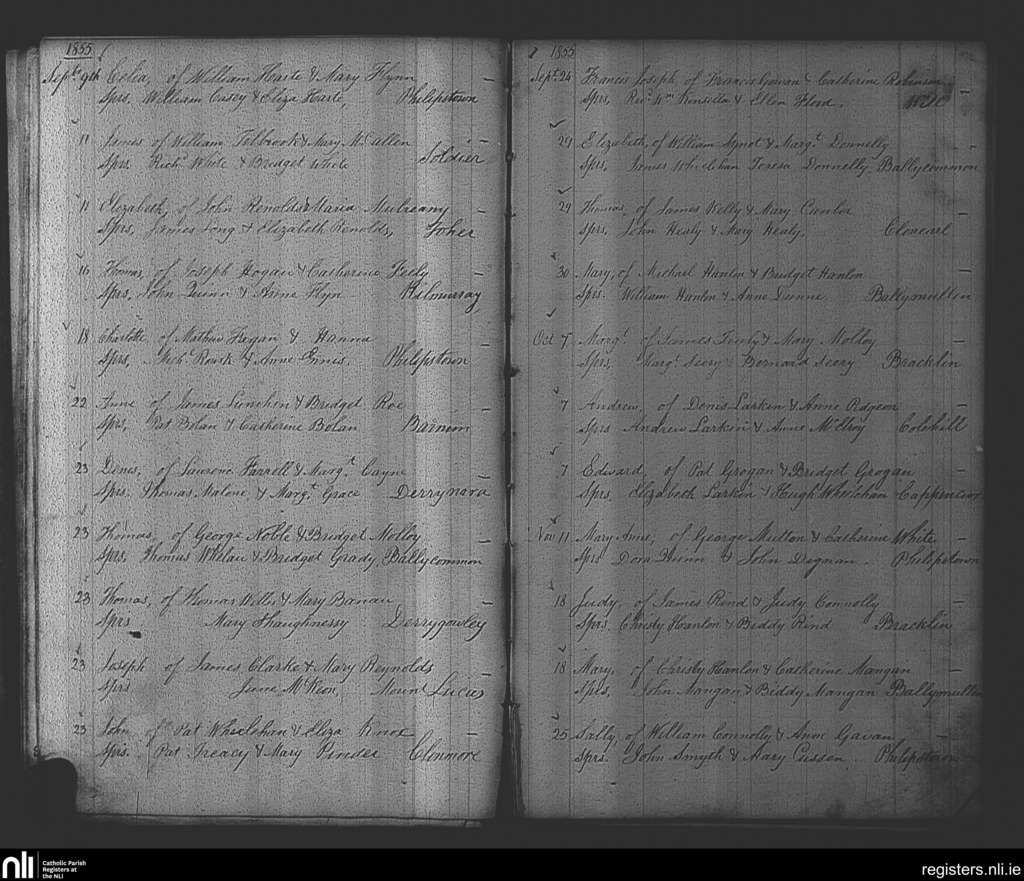 1855
Sept. 9th Celia, of William Harte & Mary Flynn
Sprs. William Casey & Eliza Harte, Philipstown
11 James of William & Mary McCullen
Sprs. Richd. White & Bridget White Soldier
11 Elizabeth, of John Renolds & Maria Mulreany
Sprs, James Long & Elizabeth Renolds, Toher
16 Thomas, of Joseph Hogan & Catherine Feely
Sprs, John Quinn & Anne Flyn Kilmurray
18 Charlotte, of Mathew Fegan & Hanna
Sprs, Michl. Rourk & Anne Ennis. Philipstown
22 Anne of James Lunchen & Bridget Roe
Sprs, Pat Bolan & Catherine Bolan Barnim
23 Denis, of Laurence Farrell & Margt. Cayne
Sprs. Thomas Malone & Margt. Grace Derrynara
23 Thomas, of George Noble & Bridget Molloy
Sprs. Thomas Whelan & Bridget Grady. Ballycommon
23 Thomas, of Thomas & Mary Banan
Sprs Mary Shaughnessy Derrygawley
23 Joseph of James Clarke & Mary Reynolds
Sprs Jane McKeon, Mount Lucus
23 John, of Pat Wheelehan & Eliza Knox
Sprs. Pat Treacy & Mary Pinder Clonmore
1855
Sept. 24 Francis Joseph of Francis Gowan & Catherine Robinson
Sprs, Revd. Wm Kinsella & Ellen Flood.
29 Elizabeth, of William Synot & Margt. Donnelly
Sprs, James Wheelehan Teresa Donnelly, Ballycommon
29 Thomas, of James Kelly & Mary
Sprs, John Healy & Mary Healy, Clonearl
30 Mary, of Michael Hanlon & Bridget Hanlon
Sprs. William Hanlon & Anne Dunne Ballymullen
Oct 7 Margt. of James & Mary Molloy
Sprs, Margt. Seery Bernard Seery Bracklin
7 Andrew, of Denis Larkin & Anne Ridgeon
Sprs Andrew Larkin & Anne McElroy Colehill
7 Edward, of Pat Grogan & Bridget Grogan
Sprs, Elizabeth Larkin & Hugh Wheelehan
Nov 11 Mary Anne, of George Mutton & Catherine White
Sprs Dora Dunn & John Degnan. Philipstown
18 Judy, of James Rind & Judy Connolly
Sprs. Christy Hanlon & Biddy Rind Bracklin
18 Mary, of Christy Hanlon & Catherine Mangan
Sprs, John Mangan & Biddy Mangan Ballymullen
25 Sally, of William Connolly & Anne Gavan
Sprs. John Smyth & Mary Cussen. Philipstown
nli Catholic Parish
Registers at
the NLI
registers.nli.ie